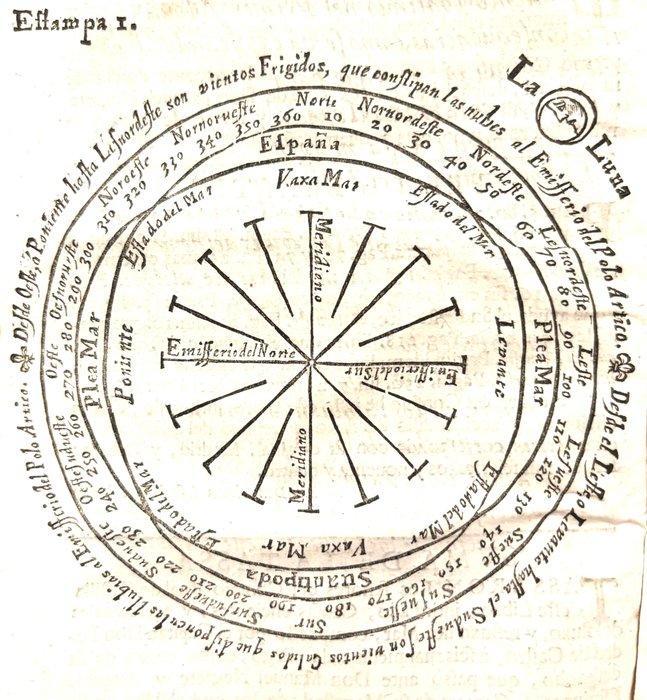 Eſtampa 1.
La Luna
Deſde Oeſte, ò Poniente haſta Leſnordeſte son vientos Frigidos, que conſtipan las nubes al Emiſſerio del Polo Artico.
Deſde el Leſte, o Levante haſta el Sudueſte ſon vientos Calidos que diſponen las llubias al Emiſſerio del Polo Artico.
Norte
Nornordeſte
Nordeſte
Leſnordeſte
Leſte
Leſueſte
Sueſte
Suſueſte
Sur
Surſudueſte
Sudueſte
Oeſſudueſte
Oeſte
Oeſnorueſte
Noroeſte
Nornorueſte
360 10 20 30 40 50 60 70 80 90 100 110 120 130 140 150 160 170 180 190 200 210 220 230 240 250 260 270 280 290 300 310 320 330 340 350
Eſpaña
Vaxa Mar
Eſtado del Mar
Plea Mar
Levante
Eſtado del Mar
Vaxa Mar
Suantipoda
Eſtado del Mar
Plea Mar
Ponirate
Eſtado del Mar
Meridiano
Emiſſerio del Norte
Emiſſerio del Sur
Meridiano